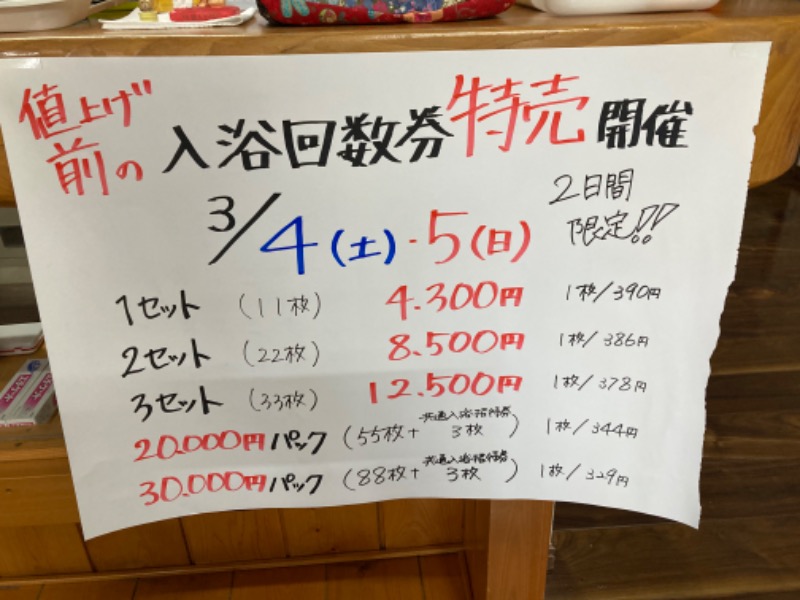 値上げ前の 入浴回数券 特売 開催
3/4(土)・5(日) 2日間限定!!
1セット (11枚) 4.300円 1枚/390円
2セット (22枚) 8.500円 1枚/386円
3セット (33枚) 12.500円 1枚/378円
20.000円パック (55枚+共通入浴招待券3枚) 1枚/344円
30.000円パック (88枚+共通入浴招待券3枚) 1枚/329円